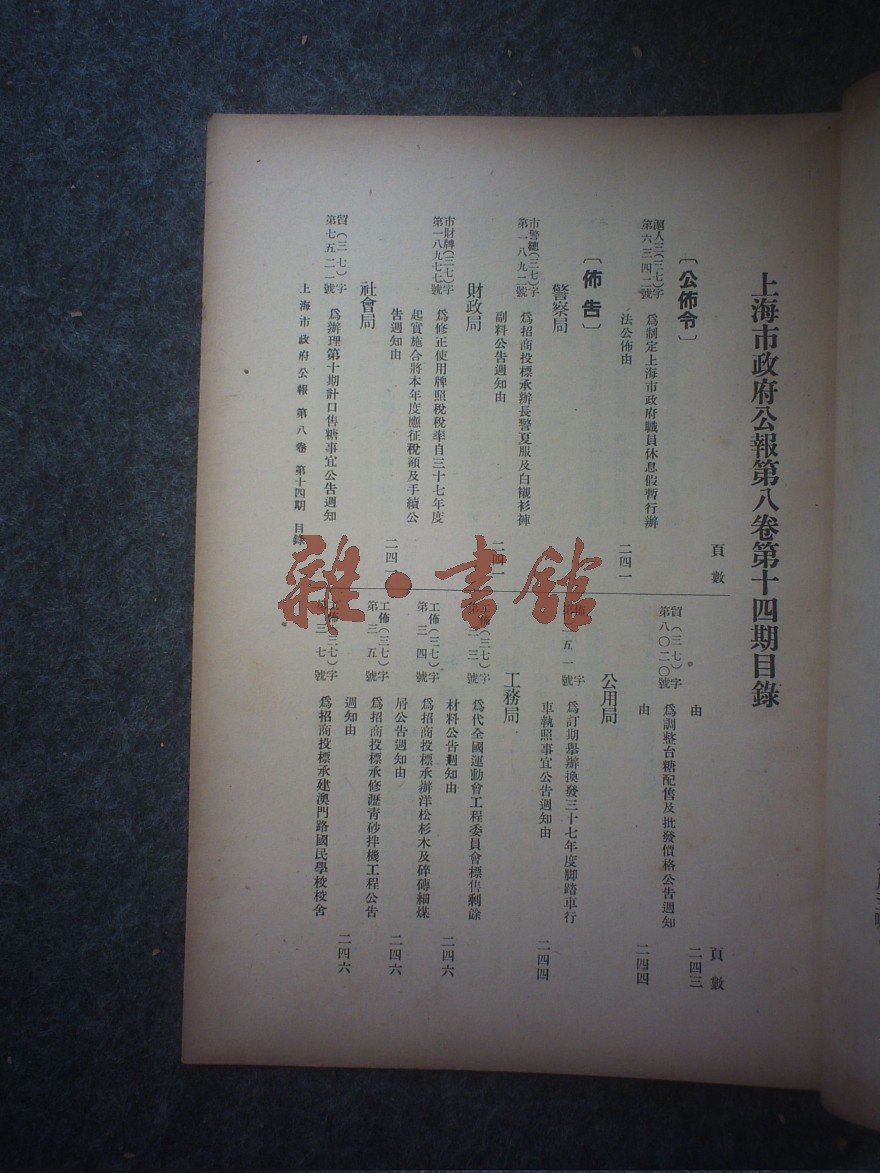 上海市政府公報第八卷第十四期目錄
頁數
〔公佈令〕
滬人三(三七)字
第六三四二號
爲制定上海市政府職員休息假暫行辦
法公佈由
二四一
〔佈告〕
警察局
市警總(三七)字
第一八九二號
爲招商投標承辦長警夏服及白襯衫褲
副料公告週知由
二四一
財政局
市財牌(三七)字
第一八九七七號
爲修正使用牌照稅稅率自三十七年度
起實施合將本年度應征稅額及手續公
告週知由
二四
社會局
貿(三七)字
第七五二一號
爲辦理第十期計口售糖事宜公告週知
頁數
由
二四三
貿(三七)字
第八〇二〇號
爲調整台糖配售及批發價格公告週知
由
二四四
公用局
字
五一號
爲訂期舉辦換發三十七年度脚踏車行
車執照事宜公告週知由
二四四
工務局
工佈(三七)字
第三三號
爲代全國運動會工程委員會標售剩餘
材料公告週知由
二四六
工佈(三七)字
第三四號
爲招商投標承辦洋松杉木及碎磚細煤
屑公告週知由
二四六
工佈(三七)字
第三五號
爲招商投標承修瀝青砂拌機工程公告
週知由
二四六
工佈(三七)字
第三七號
爲招商投標承建澳門路國民學校校舍
上海市政府公報 第八卷 第十四期 目錄
雜·書館